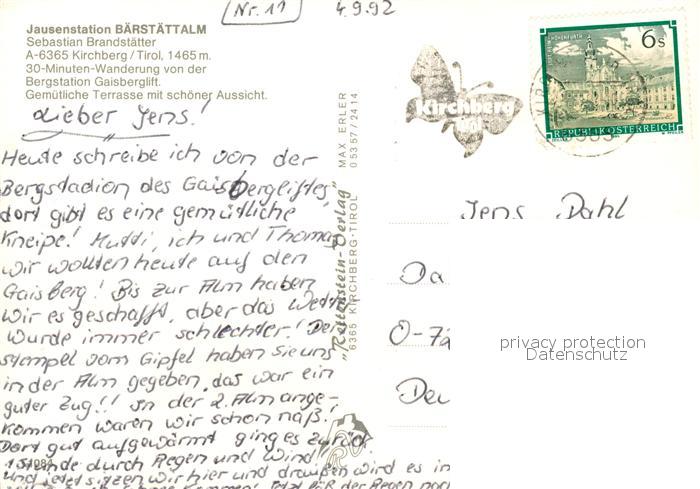 Nr. 11
4.9.92
Jausenstation BÄRSTÄTTALM
Sebastian Brandstätter
A-6365 Kirchberg/Tirol, 1465 m.
30-Minuten-Wanderung von der
Bergstation Gaisberglift.
Gemütliche Terrasse mit schöner Aussicht.
Lieber Jens!
Heute schreibe ich von der
Bergstadion des Gaisbergliftes,
dort gibt es eine gemütliche
Kneipe! Mutti, ich und Thomas
wir wollten heute auf den
Gaisberg! Bis zur Alm haben
wir es geschafft, aber das Wetter
wurde immer schlechter! Den
stempel vom Gipfel haben sie uns
in der Alm gegeben, das war ein
guter Zug!! In der 2. Alm ange-
kommen waren wir schon naß!
Dort gut aufgewärmt ging es zurück.
1 Stunde durch Regen und Wind!
und jetzt sitzen wir hier und draußen wird es
der Regen
1984
"Rettenstein-Verlag"
6365 KIRCHBERG-TIROL
MAX ERLER
05357/2414
Kirchberg
tirol
STIFT REIN-HOHENFURTH
6 S
REPUBLIK ÖSTERREICH
Jens Dahl
Da
O-
privacy protection
Datenschutz